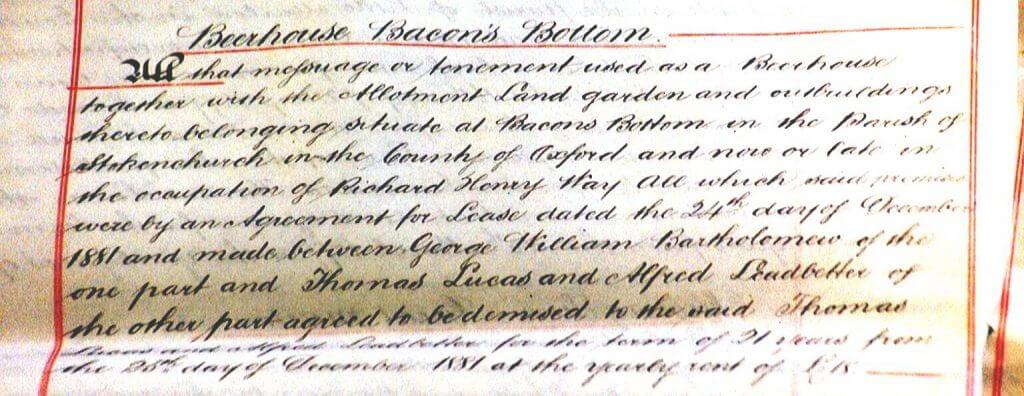 Beerhouse Bacon's Bottom.
All that messuage or tenement used as a Beerhouse
together with the Allotment Land garden and outbuildings
thereto belonging situate at Bacons Bottom in the Parish of
Stokenchurch in the County of Oxford and now or late in
the occupation of Richard Henry Way All which said premises
were by an Agreement for Lease dated the 24th day of December
1881 and made between George William Bartholomew of the
one part and Thomas Lucas and Alfred Leadbetter of
the other part agreed to be demised to the said Thomas
Lucas and Alfred Leadbetter for the term of 21 years from
the 25th day of December 1881 at the yearly rent of £18.